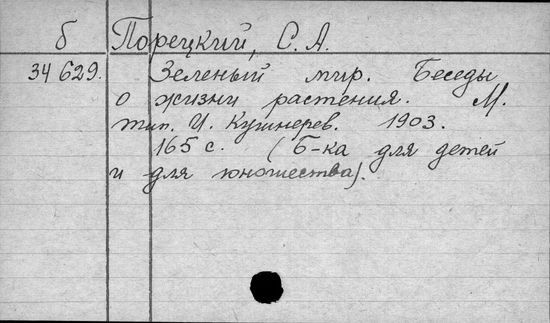 б Порецкий, С. А.
34 629. Зеленый мир. Беседы
о жизни растения. М.
тип. И. Кушнерев. 1903.
165 с. (Б-ка для детей
и для юношества).